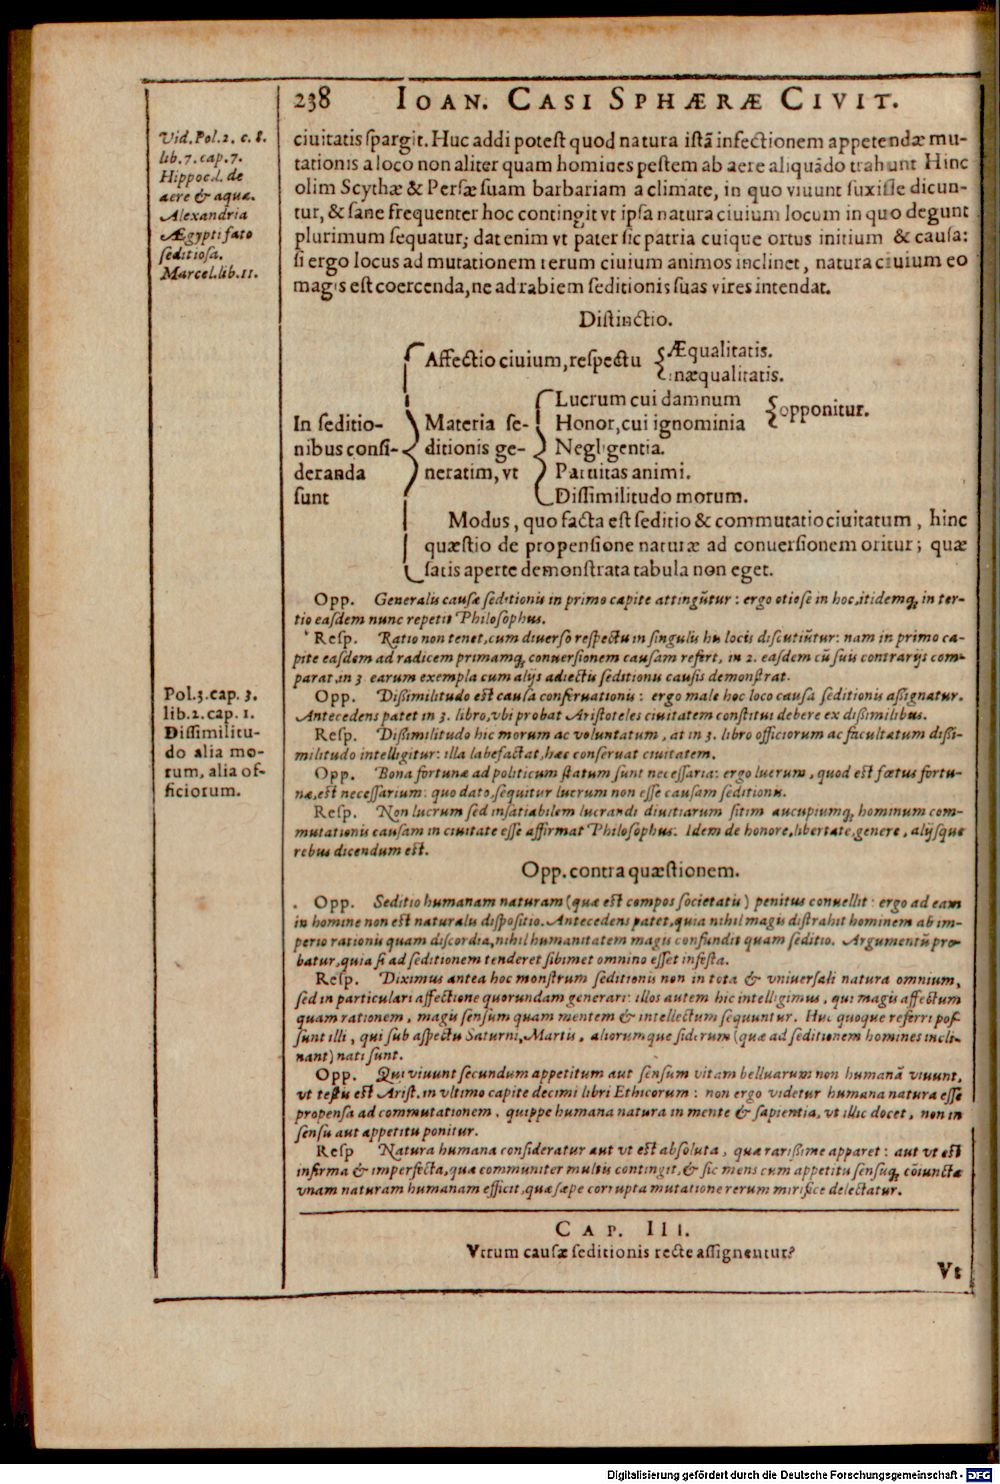 238 IOAN. CASI SPHÆRÆ CIVIT.
Vid. Pol. 2. c. 8.
lib. 7. cap. 7.
Hippoc. l. de
aere & aquæ.
Alexandria
Ægypti fato
seditiosa.
Marcel. lib. 11.
ciuitatis spargit. Huc addi potest quod natura istā infectionem appetendæ mu-
tationis a loco non aliter quam homines pestem ab aere aliquādo trahunt Hinc
olim Scythæ & Persæ suam barbariam a climate, in quo viuunt suxisse dicun-
tur, & sane frequenter hoc contingit vt ipsa natura ciuium locum in quo degunt
plurimum sequatur; dat enim vt pater sic patria cuique ortus initium & causa:
si ergo locus ad mutationem rerum ciuium animos inclinet, natura ciuium eo
magis est coercenda, ne ad rabiem seditionis suas vires intendat.
Distinctio.
In seditio-
nibus consi-
deranda
sunt
Affectio ciuium, respectu
Æqualitatis.
inæqualitatis.
Materia se-
ditionis ge-
neratim, vt
Lucrum cui damnum
Honor, cui ignominia
opponitur.
Negligentia.
Paruitas animi.
Dissimilitudo morum.
Modus, quo facta est seditio & commutatio ciuitatum, hinc
quæstio de propensione naturæ ad conuersionem oritur; quæ
satis aperte demonstrata tabula non eget.
Opp. Generalis causæ seditionis in primo capite attingūtur: ergo otiose in hoc, itidemq́; in ter-
tio easdem nunc repetit Philosophus.
Resp. Ratio non tenet, cum diuerso respectu in singulis his locis discutiūtur: nam in primo ca-
pite easdem ad radicem primamq́; conuersionem causam refert, in 2. easdem cū suis contrarijs com-
parat, in 3 earum exempla cum alijs adiectis seditionis causis demonstrat.
Pol. 3. cap. 3.
lib. 2. cap. 1.
Dissimilitu-
do alia mo-
rum, alia of-
ficiorum.
Opp. Dissimilitudo est causa conseruationis: ergo male hoc loco causa seditionis assignatur.
Antecedens patet in 3. libro, vbi probat Aristoteles ciuitatem constitui debere ex dissimilibus.
Resp. Dissimilitudo hic morum ac voluntatum, at in 3. libro officiorum ac facultatum dissi-
militudo intelligitur: illa labefactat, hæc conseruat ciuitatem.
Opp. Bona fortunæ ad politicum statum sunt necessaria: ergo lucrum, quod est fœtus fortu-
næ, est necessarium: quo dato, sequitur lucrum non esse causam seditionis.
Resp. Non lucrum sed insatiabilem lucrandi diuitiarum sitim aucupiumq́; hominum com-
mutationis causam in ciuitate esse affirmat Philosophus. Idem de honore, libertate, genere, alijsque
rebus dicendum est.
Opp. contra quæstionem.
Opp. Seditio humanam naturam (quæ est compos societatis) penitus conuellit: ergo ad eam
in homine non est naturalis dispositio. Antecedens patet, quia nihil magis distrahit hominem ab im-
perio rationis quam discordia, nihil humanitatem magis confundit quam seditio. Argumentū pro-
batur, quia si ad seditionem tenderet sibimet omnino esset infesta.
Resp. Diximus antea hoc monstrum seditionis non in tota & vniuersali natura omnium,
sed in particulari affectione quorundam generari: illos autem hic intelligimus, qui magis affectum
quam rationem, magis sensum quam mentem & intellectum sequuntur. Huc quoque referri pos-
sunt illi, qui sub aspectu Saturni, Martis, aliorumque siderum (quæ ad seditionem homines incli-
nant) nati sunt.
Opp. Qui viuunt secundum appetitum aut sensum vitam belluarum non humanā viuunt,
vt testis est Arist. in vltimo capite decimi libri Ethicorum: non ergo videtur humana natura esse
propensa ad commutationem, quippe humana natura in mente & sapientia, vt illic docet, non in
sensu aut appetitu ponitur.
Resp Natura humana consideratur aut vt est absoluta, quæ rarissime apparet: aut vt est
infirma & imperfecta, quæ communiter multis contingit, & sic mens cum appetitu sensuq́; cōiuncta
vnam naturam humanam efficit, quæ sæpe corrupta mutatione rerum mirifice delectatur.
CAP. III.
Vtrum causæ seditionis recte assignentur?
Vt
Digitalisierung gefördert durch die Deutsche Forschungsgemeinschaft - DFG